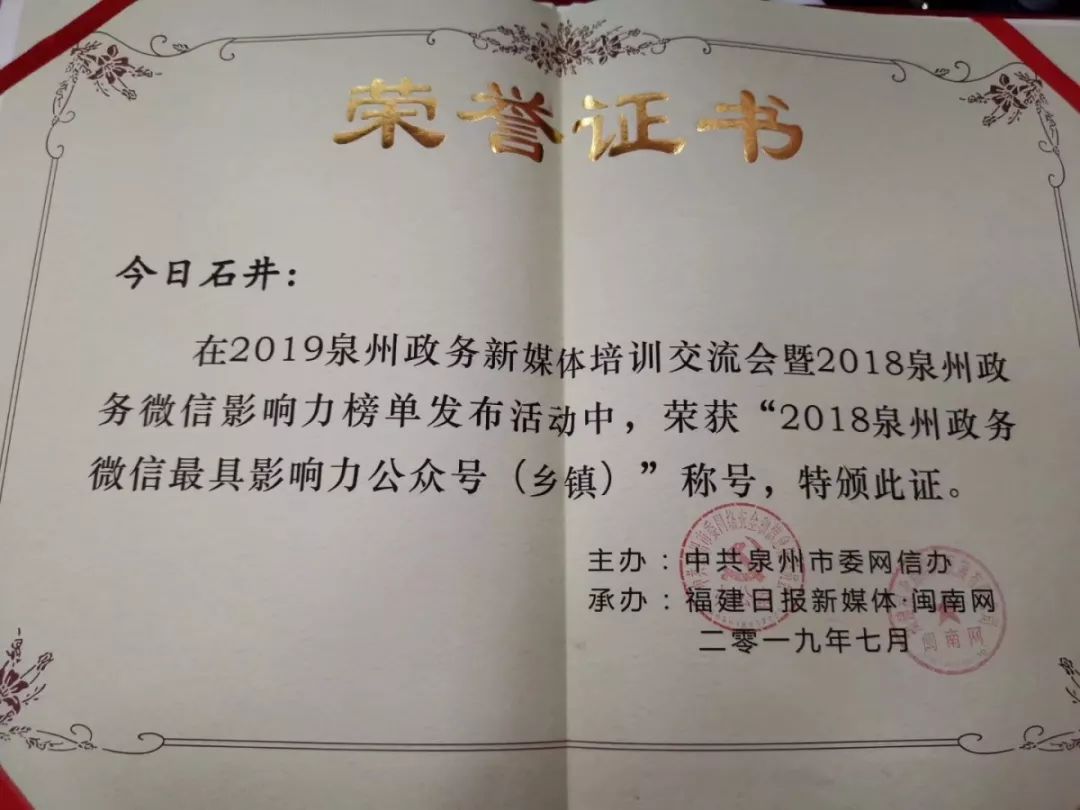 荣誉证书
今日石井：
在2019泉州政务新媒体培训交流会暨2018泉州政
务微信影响力榜单发布活动中，荣获“2018泉州政务
微信最具影响力公众号（乡镇）”称号，特颁此证。
主办：中共泉州市委网信办
承办：福建日报新媒体·闽南网
二零一九年七月
闽南网